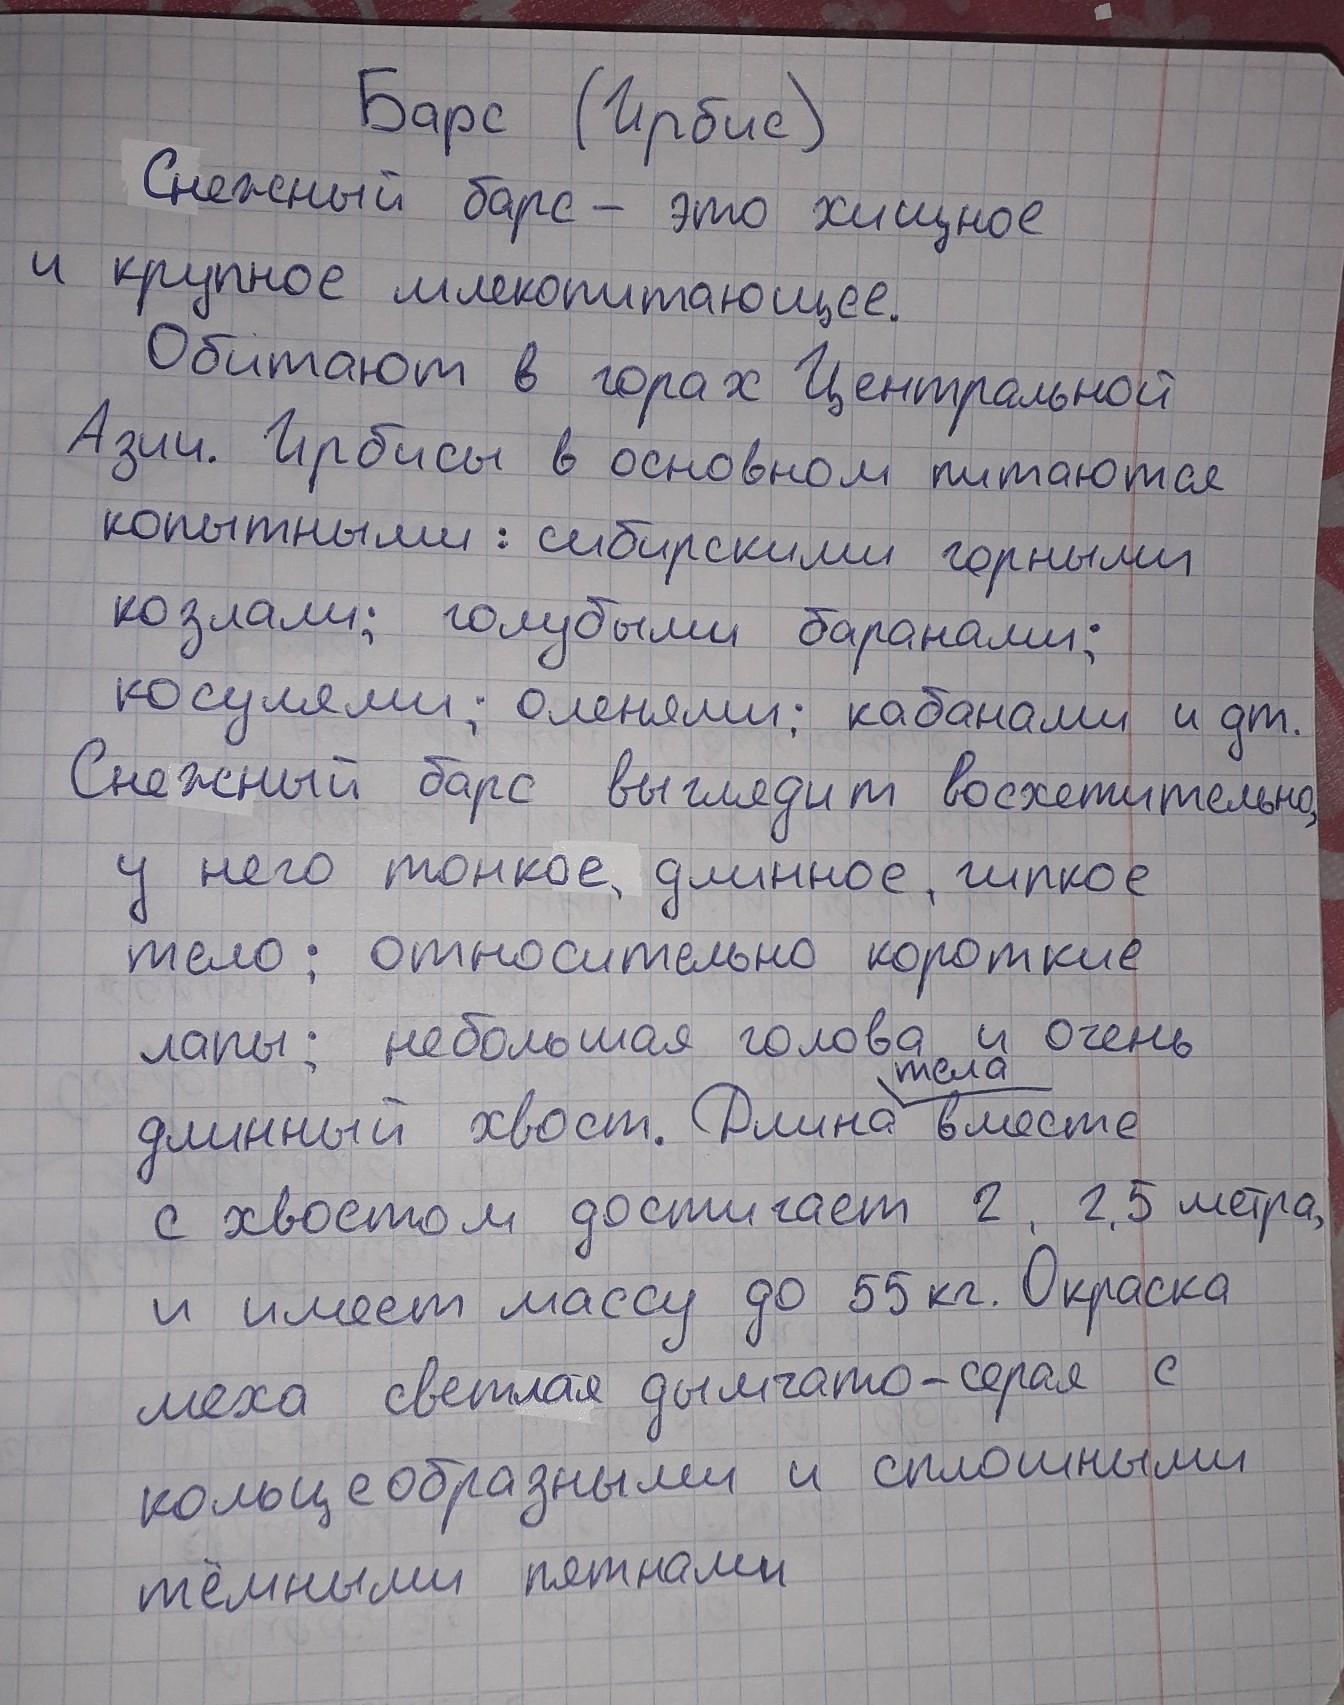 Барс (Ирбис)
Снежный барс – это хищное
и крупное млекопитающее.
Обитают в горах Центральной
Азии. Ирбисы в основном питаются
копытными: сибирскими горными
козлами; голубыми баранами;
косулями; оленями; кабанами и дт.
Снежный барс выглядит восхетительно,
у него тонкое, длинное, гипкое
тело; относительно короткие
лапы; небольшая голова и очень
тела
длинный хвост. Длина вместе
с хвостом достигает 2, 2,5 метра,
и имеет массу до 55 кг. Окраска
меха светлая дымчато-серая с
кольцеобразными и сплошными
тёмными пятнами